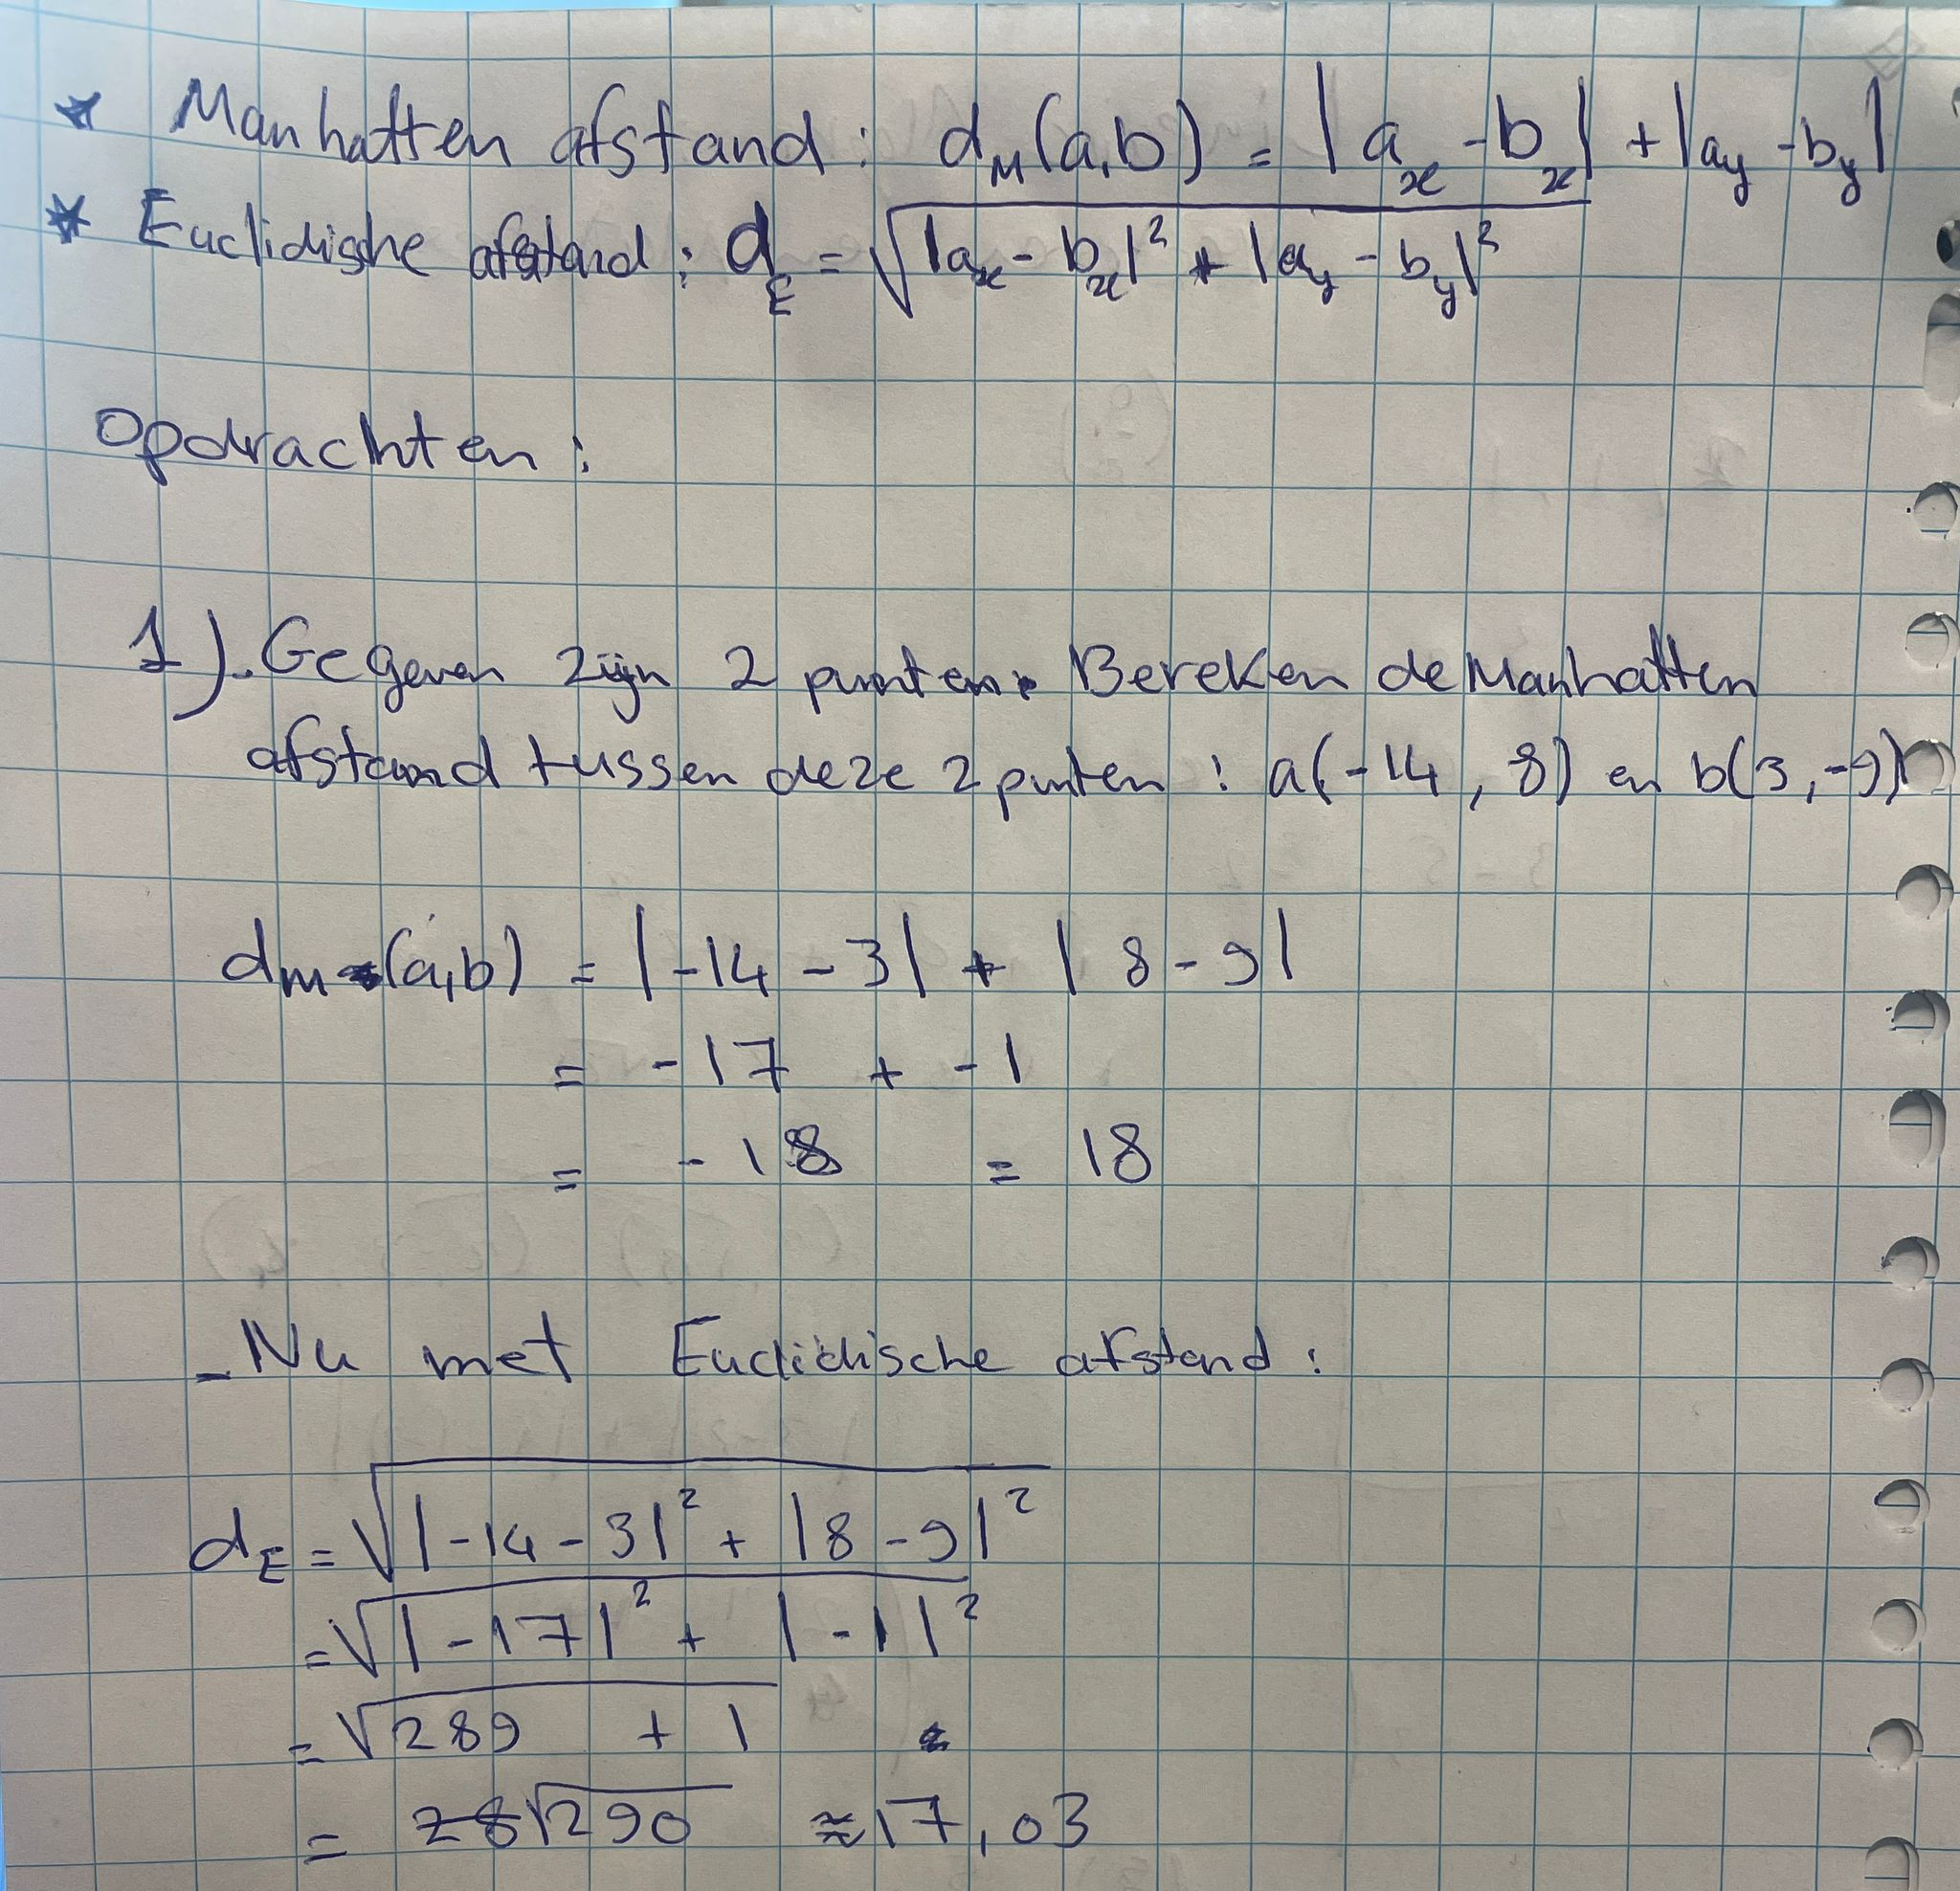 * Manhatten afstand : dM(a,b) = |ax - bx| + |ay - by|
* Euclidische afstand : dE = √|ax - bx|² + |ay - by|²
Opdrachten :
1). Gegeven zijn 2 punten. Bereken de Manhatten
afstand tussen deze 2 punten : a(-14 , 8) en b(3, -9)
dm (a,b) = |-14 - 3| + | 8 - 9|
= -17 + -1
= -18 = 18
- Nu met Euclidische afstand :
dE = √|-14 - 3|² + |8 - 9|²
= √|-17|² + |-1|²
= √289 + 1
= √290 ≈ 17,03